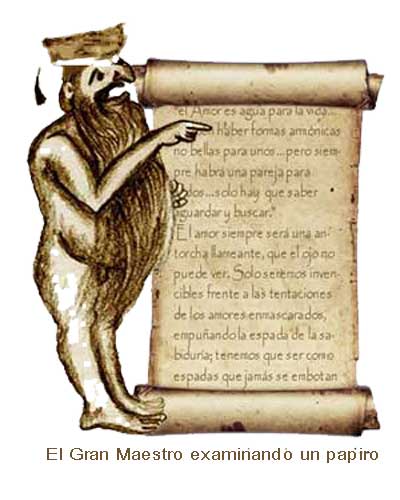 "el Amor es agua para la vida...
haber formas armónicas
no bellas para unos...pero siem-
pre habrá una pareja para
dos...solo hay que saber
aguardar y buscar."
El amor siempre será una an-
torcha llameante, que el ojo no
puede ver. Solo seremos inven-
cibles frente a las tentaciones
de los amores enmascarados,
empuñando la espada de la sa-
biduría; tenemos que ser como
espadas que jamás se embotan
El Gran Maestro examinando un papiro